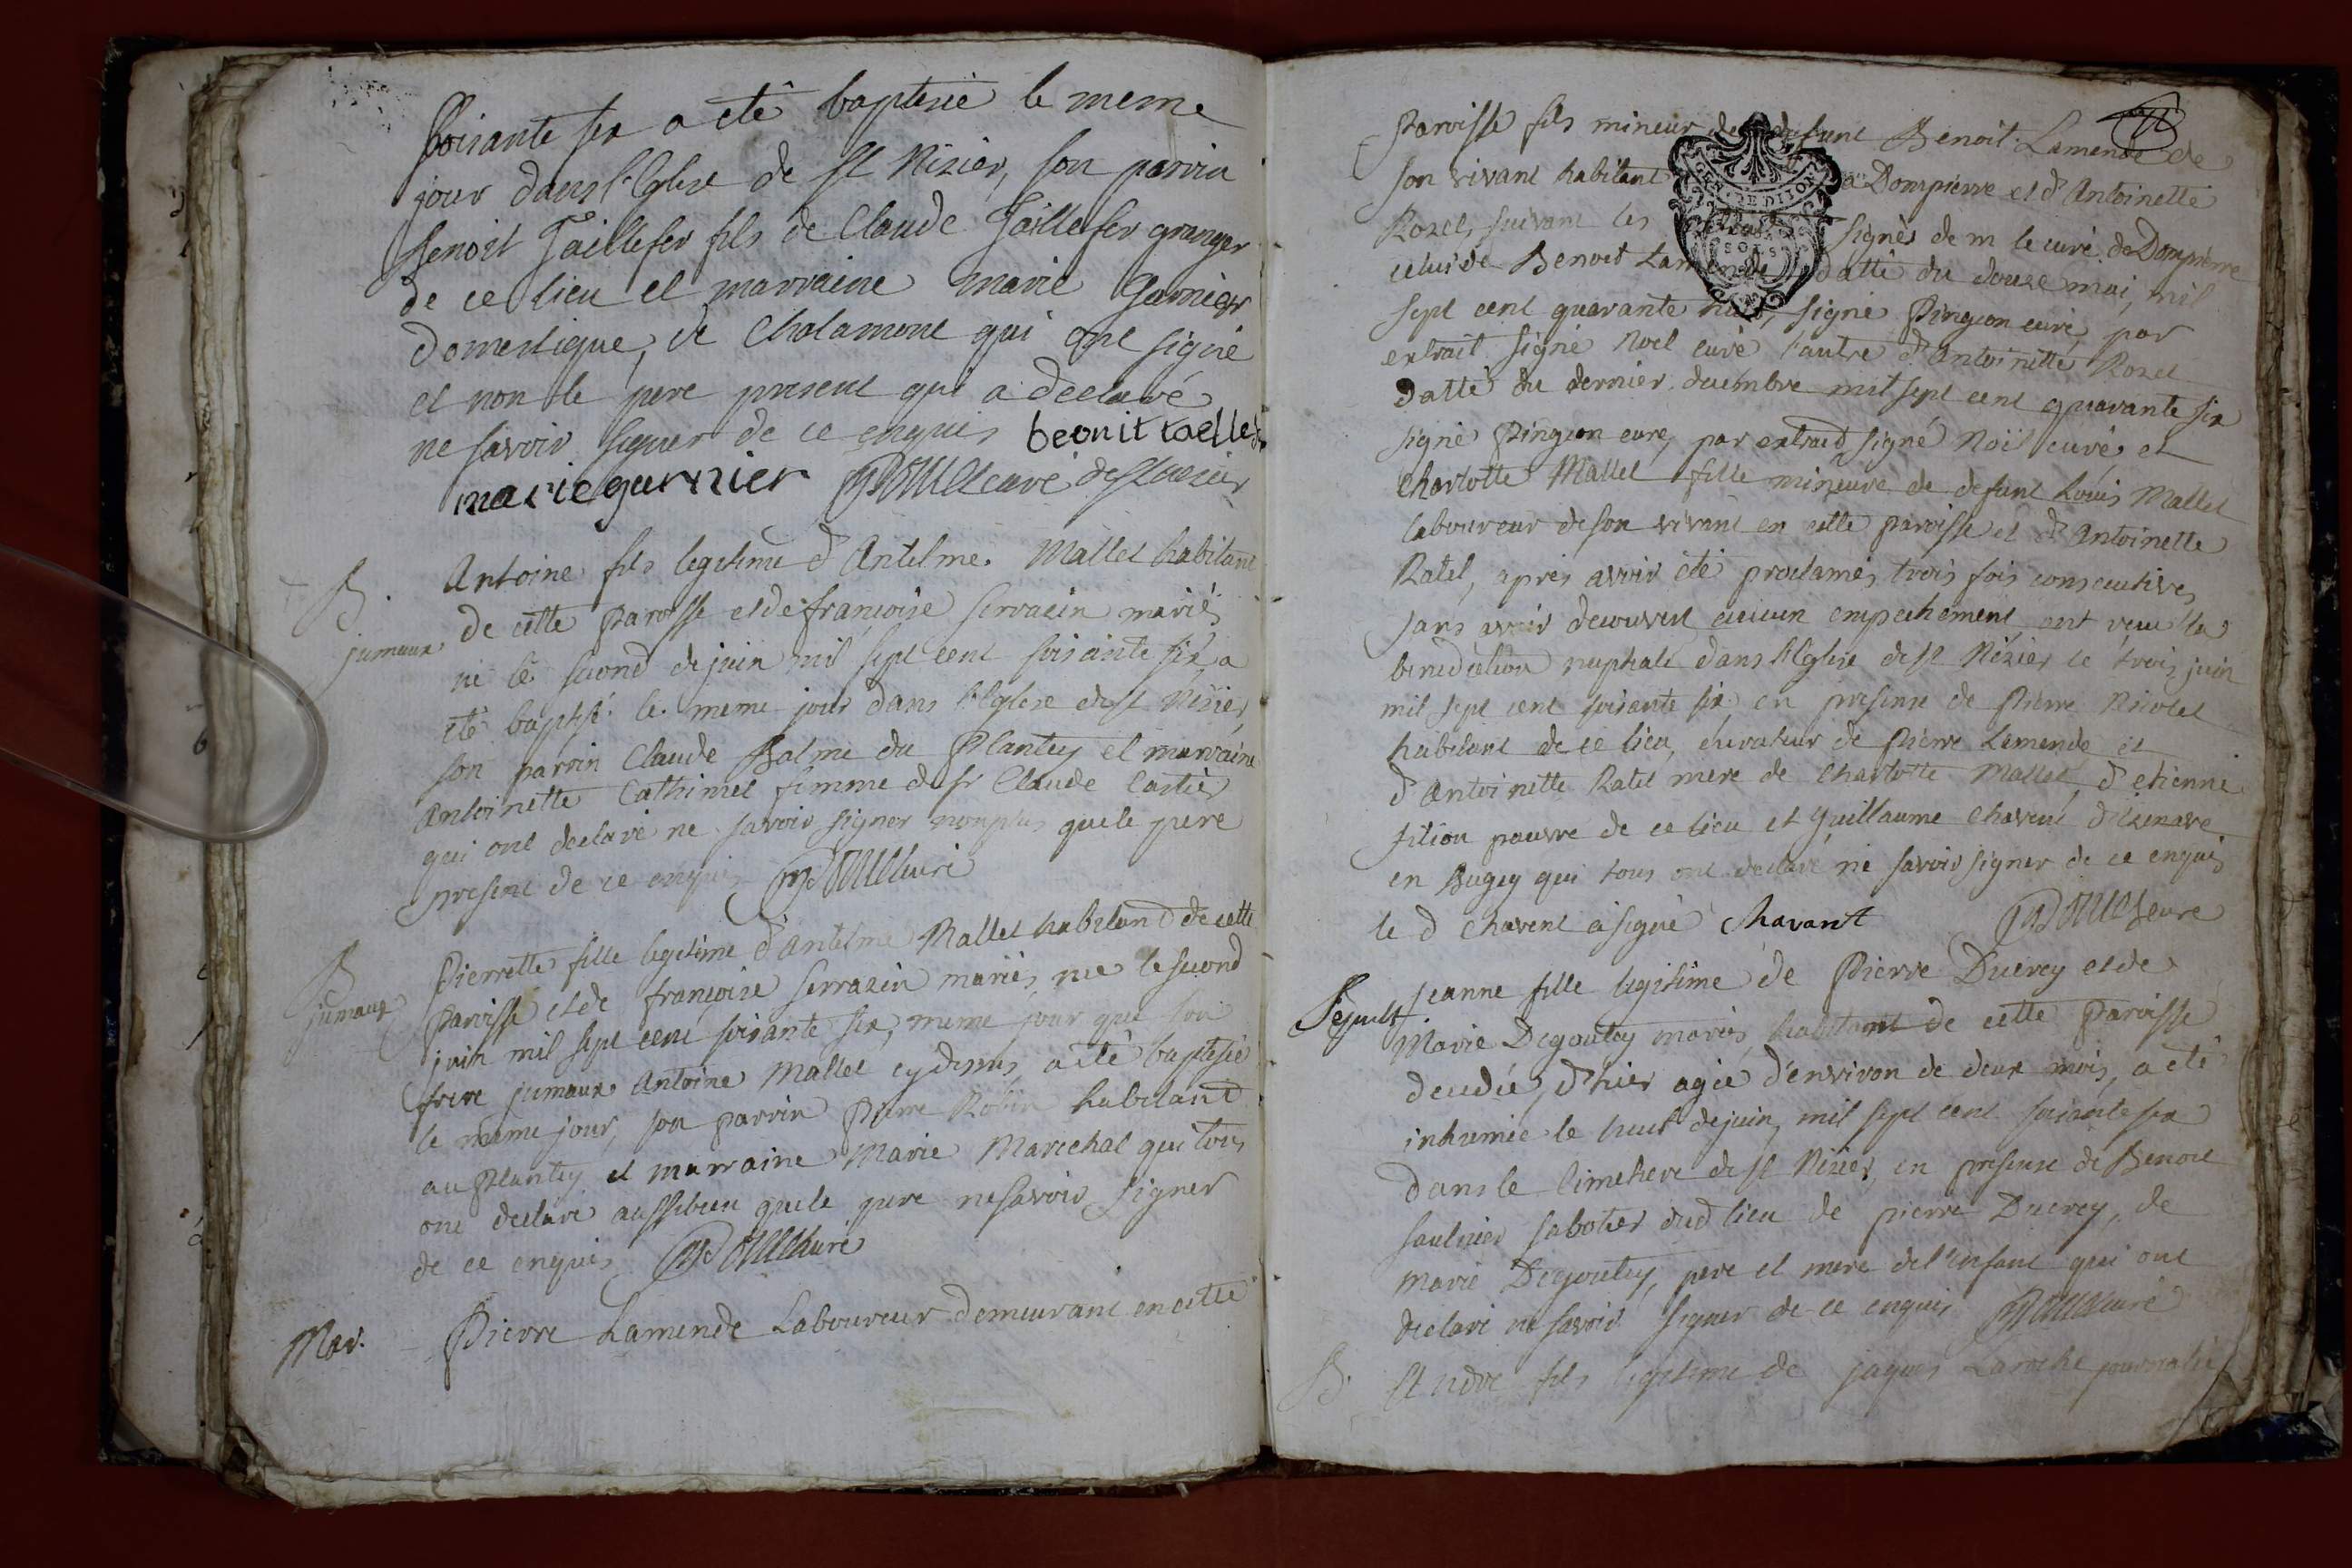 soixante six a eté baptisé le meme
jour dans l'Eglise de st Nizier, son parrin
Benoit Taillefer fils de Claude Taillefer granger
de ce lieu et marraine marie Garnier
domestique, de Chalamont qui ont signé
et non le pere present qui a declaré
ne savoir signer de ce enquis beonit taellefer
marie garnier curé de st nizier
B.
jumeaux
Antoine fils legitime d'Antelme Mallet habitant
de cette Paroisse et de françoise serrazin mariés
né le second de juin mil sept cent soixante six a
été baptisé le meme jour dans l'Eglise de st Nizier
son parrin Claude Balme du Plantey et marraine
Antoinette Cathinet femme de sr Claude Cartier
qui ont declaré ne savoir signer nomplus que le pere
present de ce enquis curé
B
jumaux
Pierrette fille legitime d'antelme Mallet habitand de cette
Paroisse et de françoise serrazin mariés, née le second
juin mil sept cent soixante six, meme jour que son
frere jumaux Antoine Mallet cy dessus, a été baptisée
le meme jour, son parrin Pierre Robin habitant
au Plantey et marraine Marie Marechal qui tous
ont declaré aussibien que le pere ne savoir signer
de ce enquis curé
Mar.
Pierre Lamende Laboureur demeurant en cette
Paroisse fils mineur de defunt Benoit Lamende de
son vivant habitant a Dompierre et d'Antoinette
Rozel, suivant les extraits signés de m le curé de Dompierre
celui de Benoit Lamende datté du douze mai, mil
sept cent quarante huit, signé Pingeon curé, par
extrait signé Noel curé l'autre d'antoinette Rozel
datté du dernier decembre mil sept cent quarante six
signé Pingeon curé, par extraid signé Noël curé et
Charlotte Mallet fille mineure de defunt Louis Mallet
laboureur de son vivant en cette paroisse et d'Antoinette
Ratel, après avoir été proclamés trois fois consecutives
sans avoir decouvert aucun empechement ont reçu la
benediction nuptiale dans l'Eglise de st Nizier le trois juin
mil sept cent soixante six en presence de Pierre Nicolet
habitant de ce lieu, curateur de Pierre Lamende et
d'Antoinette Ratel mere de Charlotte Mallet, d'etienne
filion pauvre de ce lieu et guillaume Chavent d'izenave
en Bugey qui tous ont declaré ne savoir signer de ce enquis
le d Chavent a signé Chavant curé
Sepult.
Jeanne fille legitime de Pierre Ducrey et de
Marie Degoutey mariés, habitant de cette Paroisse
decedée, d'hier agée d'environ de deux mois, a eté
inhumée le huit de juin, mil sept cent soixante six
dans le Cimetiere de st Nizier, en presence de Benoit
saulnier sabotier dud lieu de pierre Ducrey, de
marie Degoutey, pere et mere de l'enfant qui ont
declaré ne savoir signer de ce enquis curé
B.
André fils legitime de jaques Laroche journalié